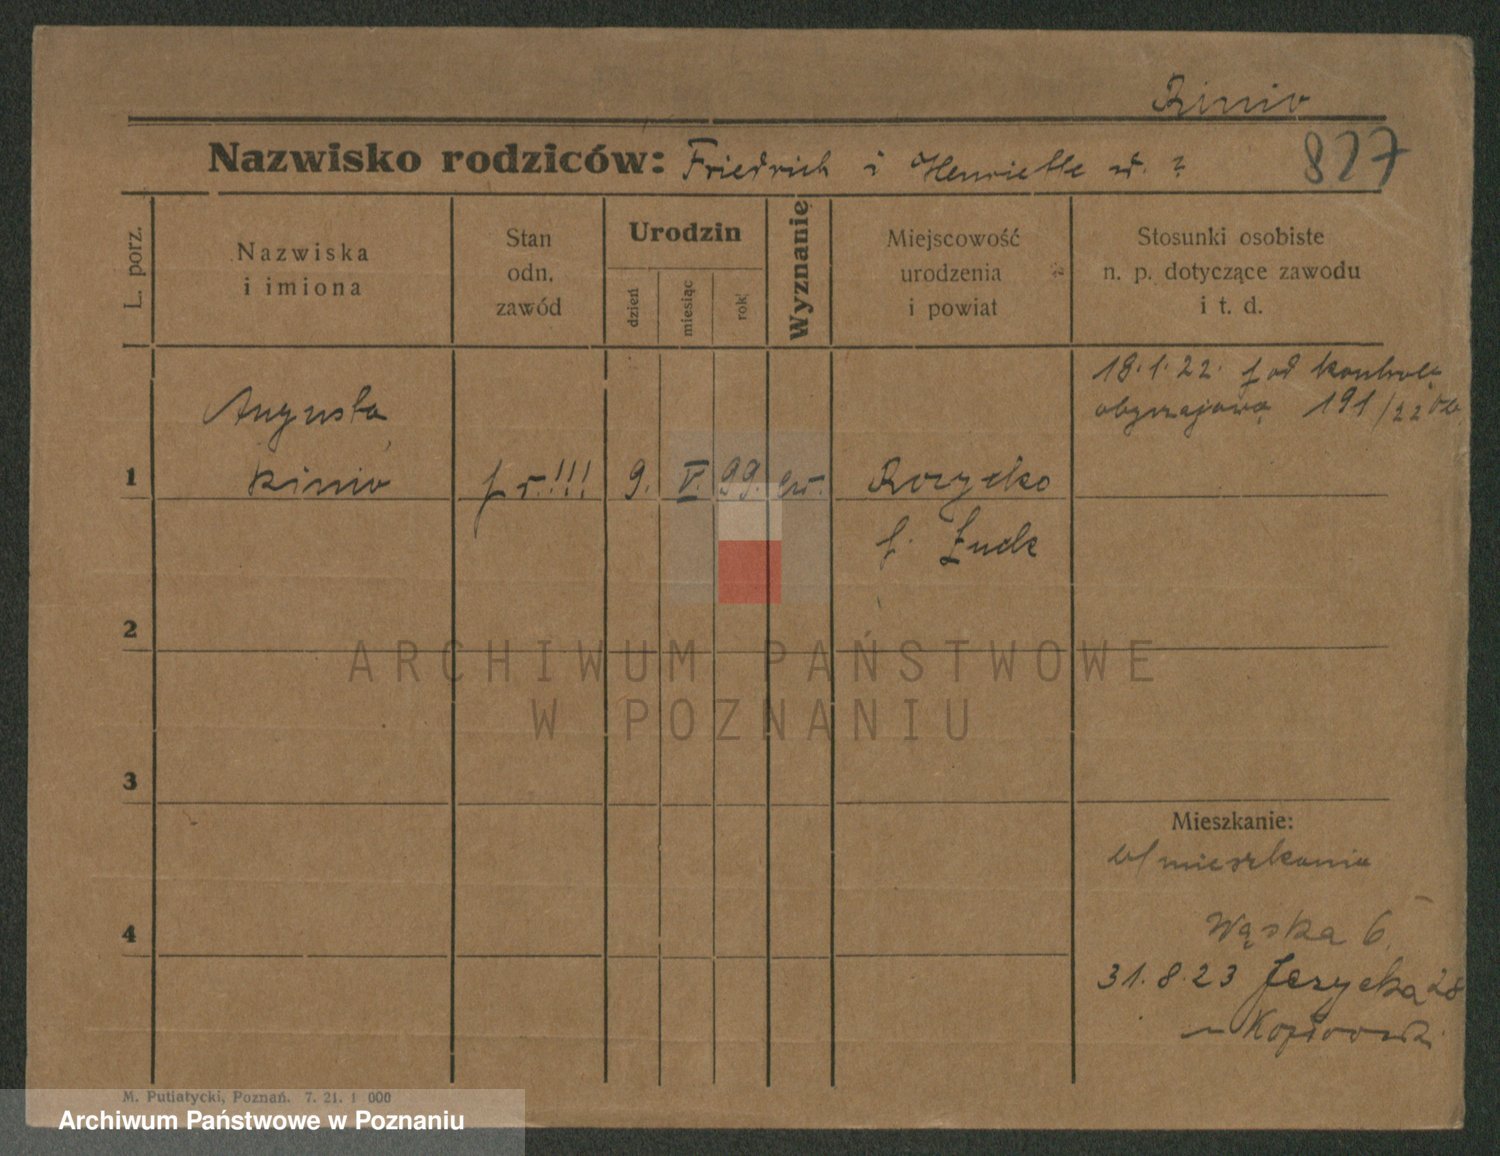 Rinio
Nazwisko rodziców: Friedrich i Henriette ?
827
L. porz.
Nazwiska
i imiona
Stan
odn.
zawód
Urodzin
dzień
miesiąc
rok
Wyznanie
Miejscowość
urodzenia
i powiat
Stosunki osobiste
n. p. dotyczące zawodu
i t. d.
18.1.22. pod kontrolą
obyczajową 191/22
Augusta
1 Rinio !!! 9. V. 99. ew.
2
3
4
Mieszkanie:
b/mieszkania
Wąska 6.
31.8.23 Jeżycka 28
M. Putiatycki, Poznań. 7. 21. 1 000
ARCHIWUM PAŃSTWOWE
W POZNANIU
Archiwum Państwowe w Poznaniu